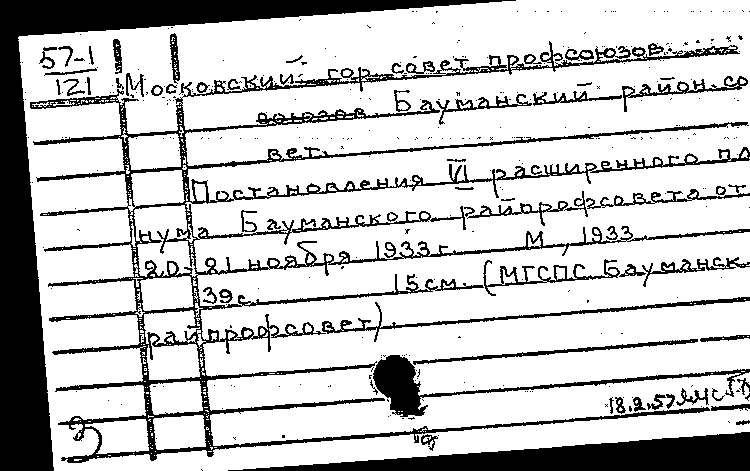 57-1
121
Московский гор. совет профсоюзов
союзов Бауманский район. со
вет.
Постановления VI расширенного пле
нума Бауманского райпрофсовета от
20-21 ноября 1933 г. М, 1933.
39 с. 15 см. (МГСПС Бауманск
райпрофсовет).
18.2.57